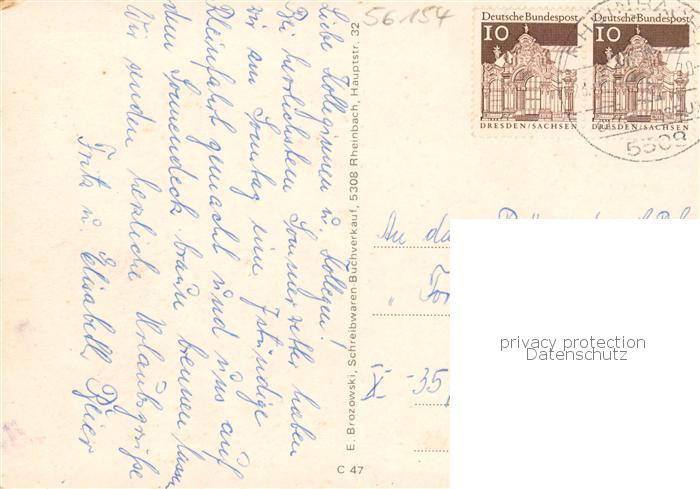 56154
Deutsche Bundespost
10
DRESDEN/SACHSEN
Deutsche Bundespost
10
DRESDEN/SACHSEN
5308
Liebe Kolleginnen u. Kollegen!
Bei herrlichstem Sommerwetter haben
wir am Sonntag eine 7stündige
Rheinfahrt gemacht und uns auf
dem Sonnendeck braun brennen lassen
Wir senden herzliche Urlaubsgrüße
Fritz u. Elisabeth
E. Brozowski, Schreibwaren-Buchverkauf, 5308 Rheinbach, Hauptstr. 32
C 47
An da
"
X -35
privacy protection
Datenschutz